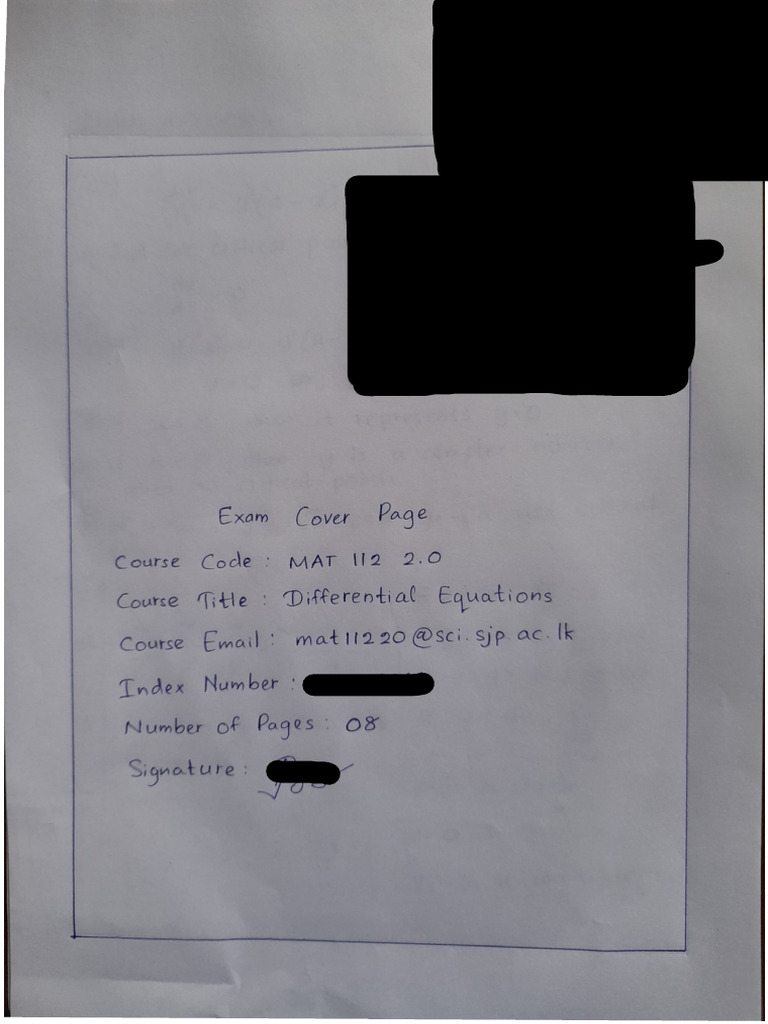 Exam Cover Page
Course Code : MAT 112 2.0
Course Title : Differential Equations
Course Email : mat11220@sci.sjp.ac.lk
Index Number :
Number of Pages : 08
Signature :